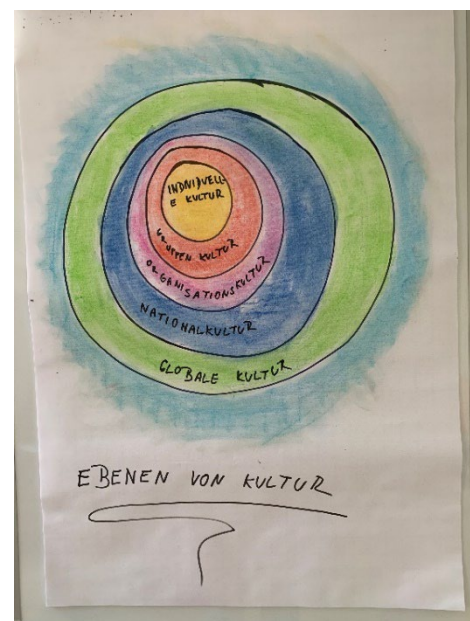 INDIVIDUELL-
E KULTUR
GRUPPEN KULTUR
ORGANISATIONSKULTUR
NATIONALKULTUR
GLOBALE KULTUR
EBENEN VON KULTUR